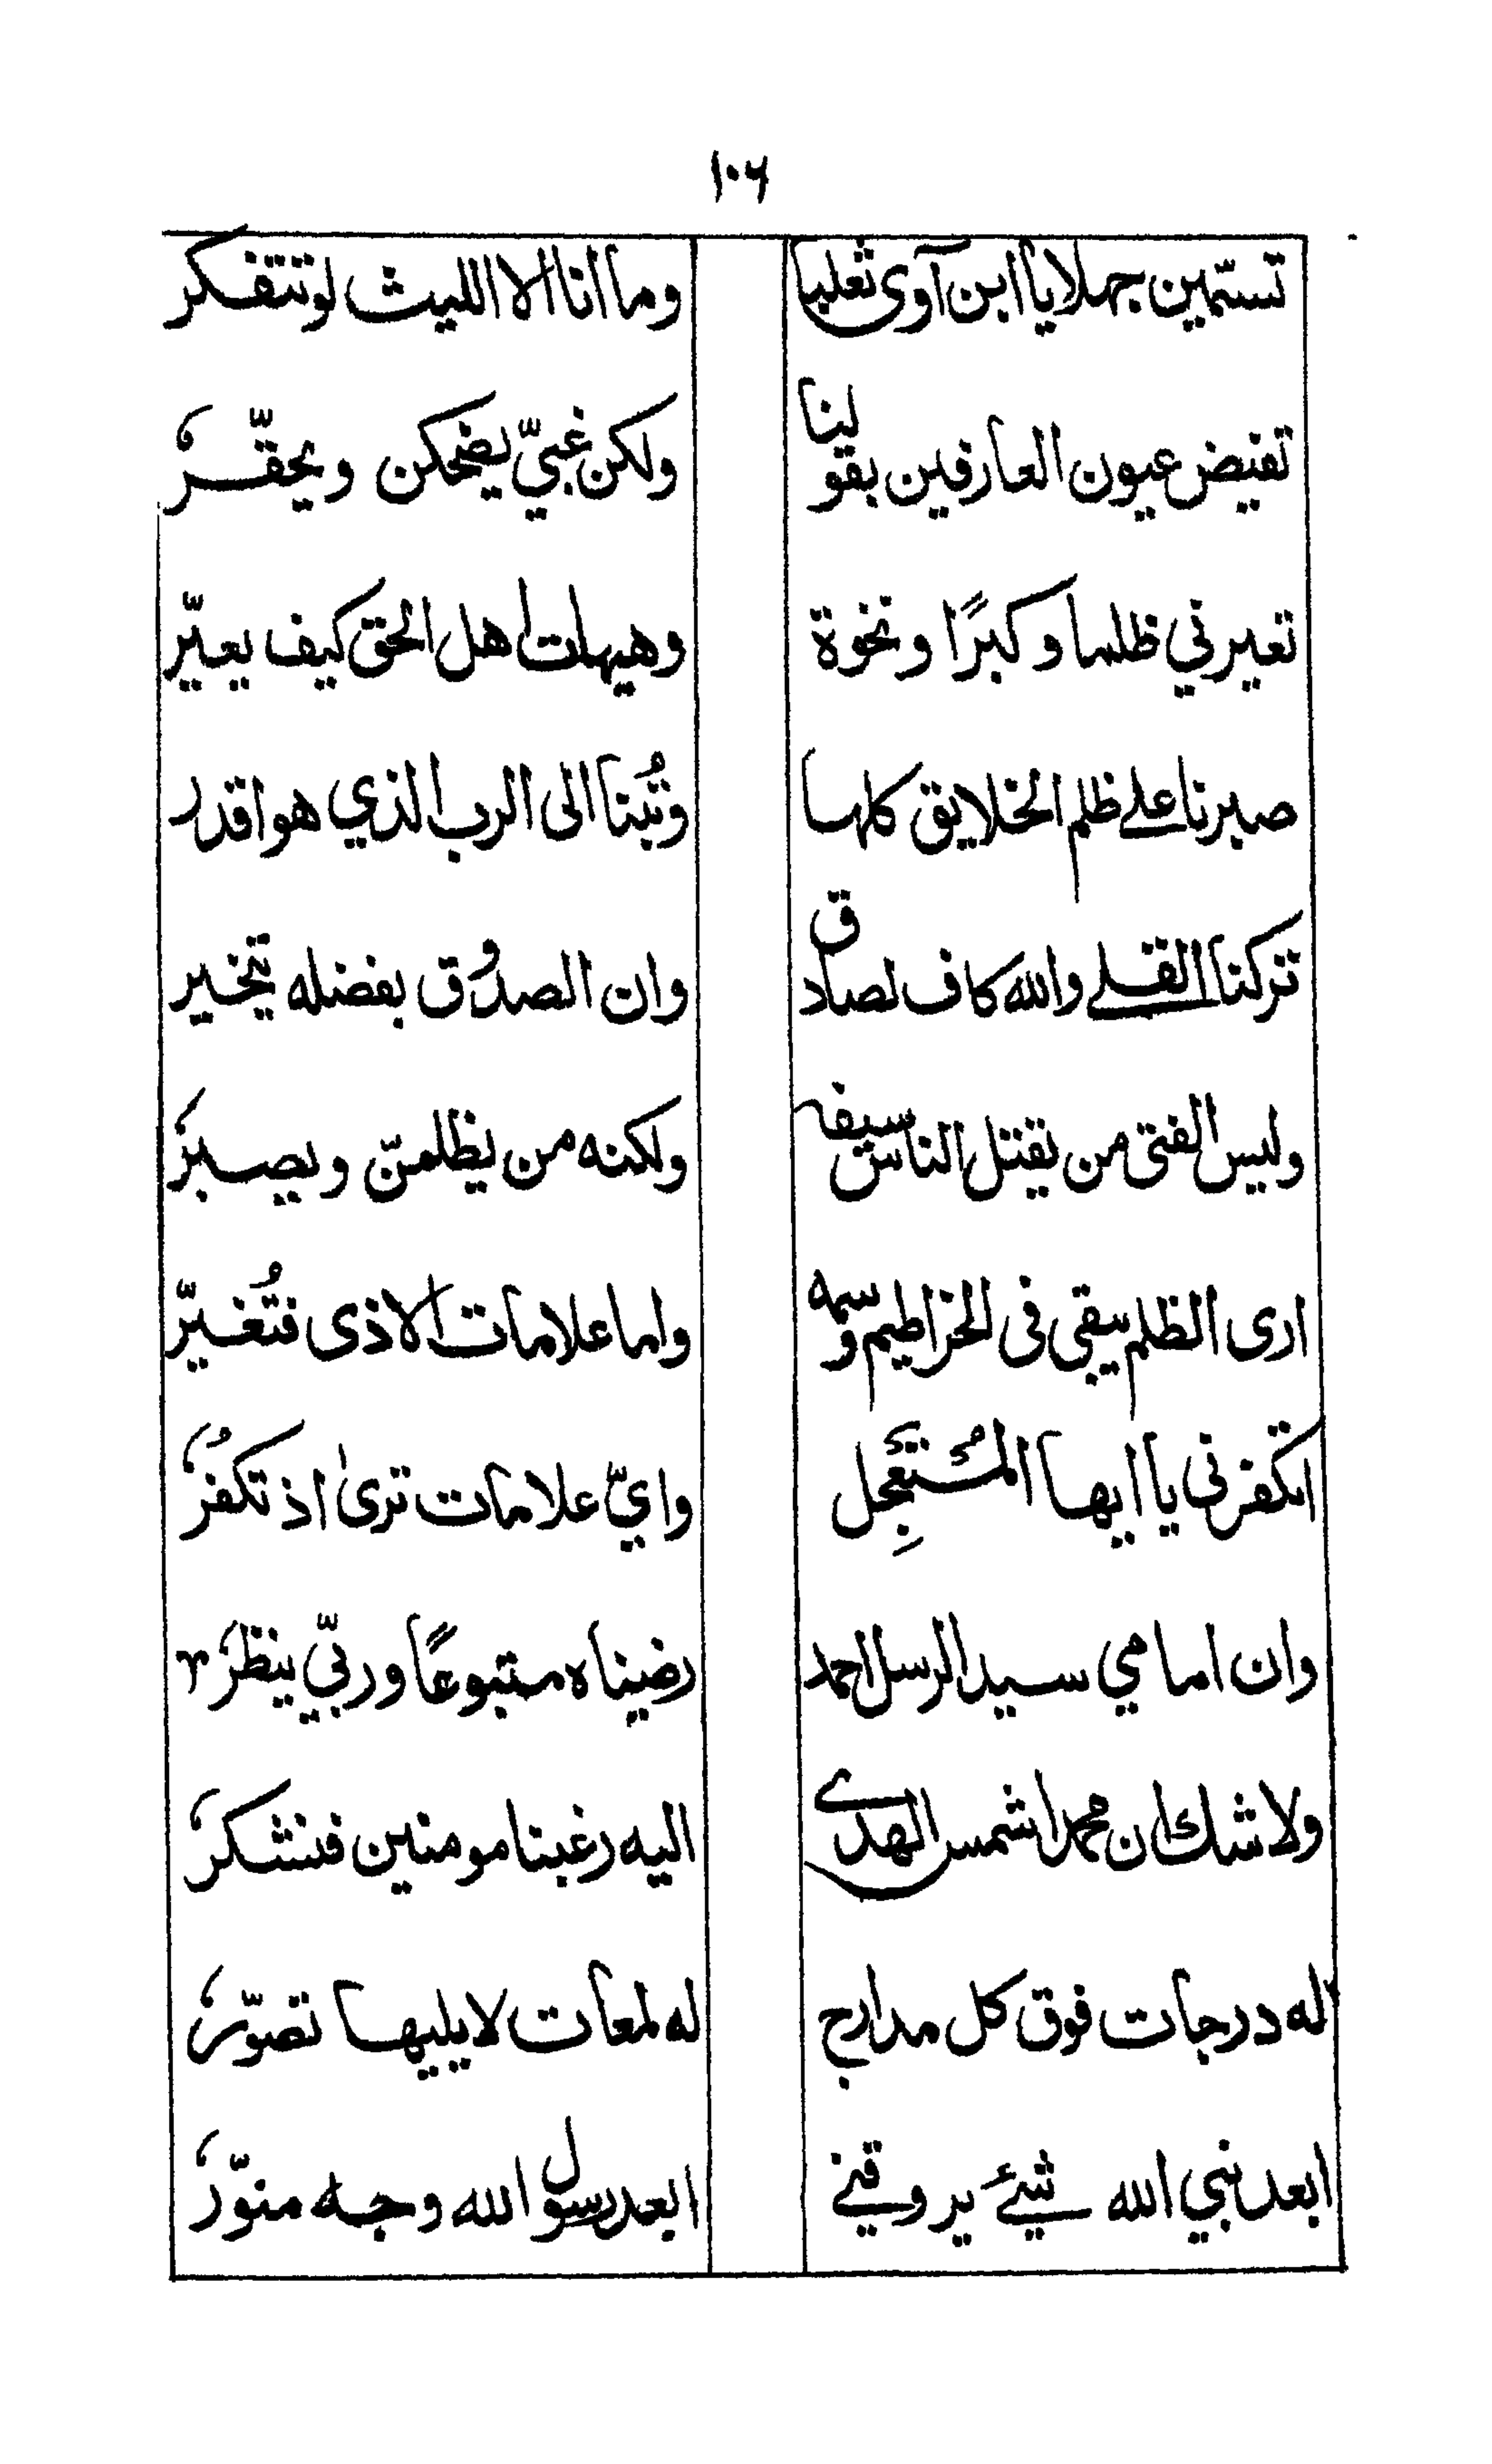 ١٠٦
تسمّين جهلا يا ابن آوى ثعلبا وما انا الا الليث لو تتفكر
تفيض عيون العارفين بقولنا ولكن غبيّ يضحكن ويحقّر
تعيرني ظلما وكبرًا ونخوة وهيهات اهل الحق كيف يعيّر
صبرنا علے ظلم الخلايق كلها وتُبنا الى الرب الذي هو اقدر
تركنا القلے والله كاف لصادق وان الصدُوق بفضله يتخير
وليس الفتى من يقتل الناس سيفه ولكنه من يظلمنّ ويصبر
ارى الظلم يبقى فى الخراطيم وسمه واما علامات الاذى فتُغيّر
اتكفرنى يا ايها المُسْتَعْجِل وايّ علامات ترىٰ اذ تكفُر
وان امامي سيد الرسل احمد رضيناه متبوعًا وربّي ينظر
ولا شك ان محمدا شمس الهدے اليه رغبنا مومنين فنشكر
له درجات فوق كل مدارج له لمعات لا يليها تصوّر
ابعد نبي الله شيئ يروقنے ابعد رسول الله وجه منوّر